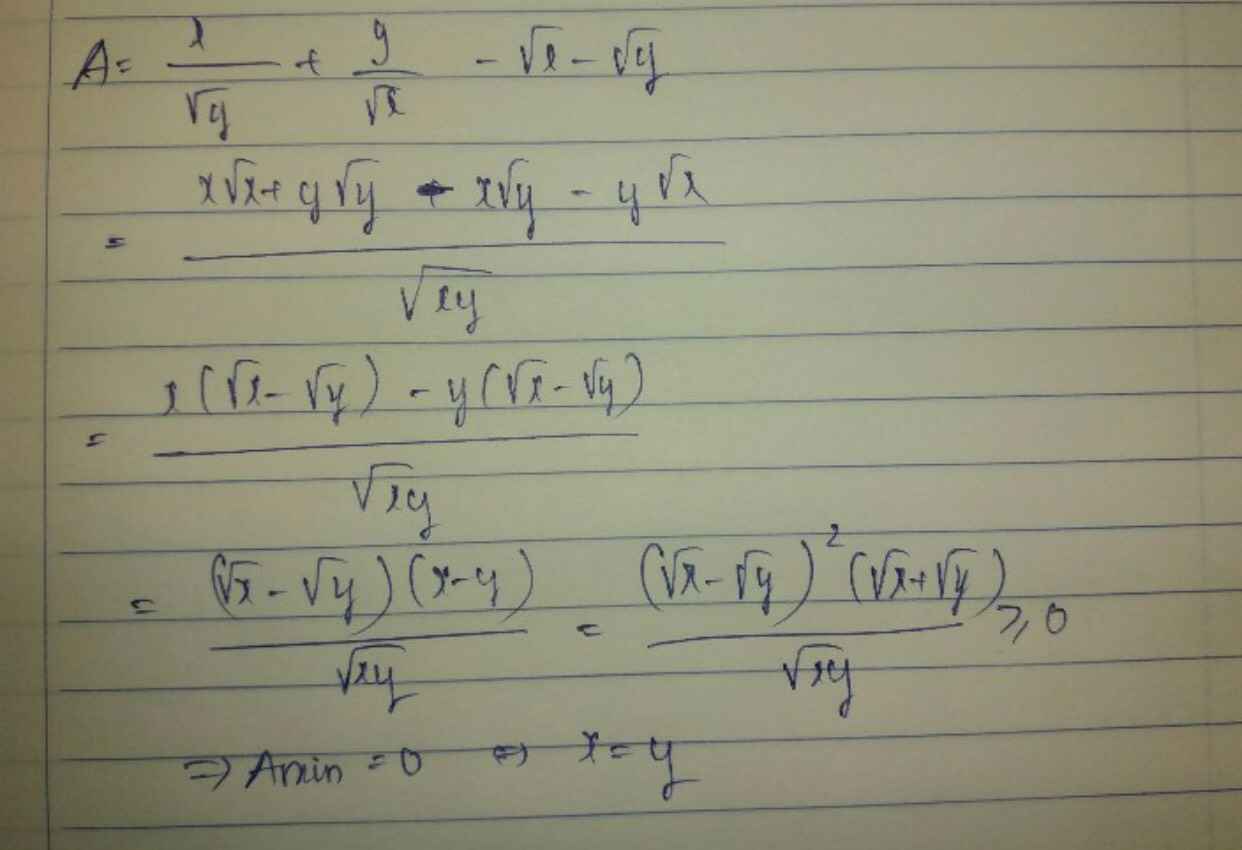 A = x/√y + y/√x - √x - √y
= (x√x + y√y - x√y - y√x)/√xy
= (x(√x - √y) - y(√x - √y))/√xy
= ((√x - √y)(x - y))/√xy = ((√x - √y)²(√x + √y))/√xy ≥ 0
⇒ Amin = 0 ⇔ x = y